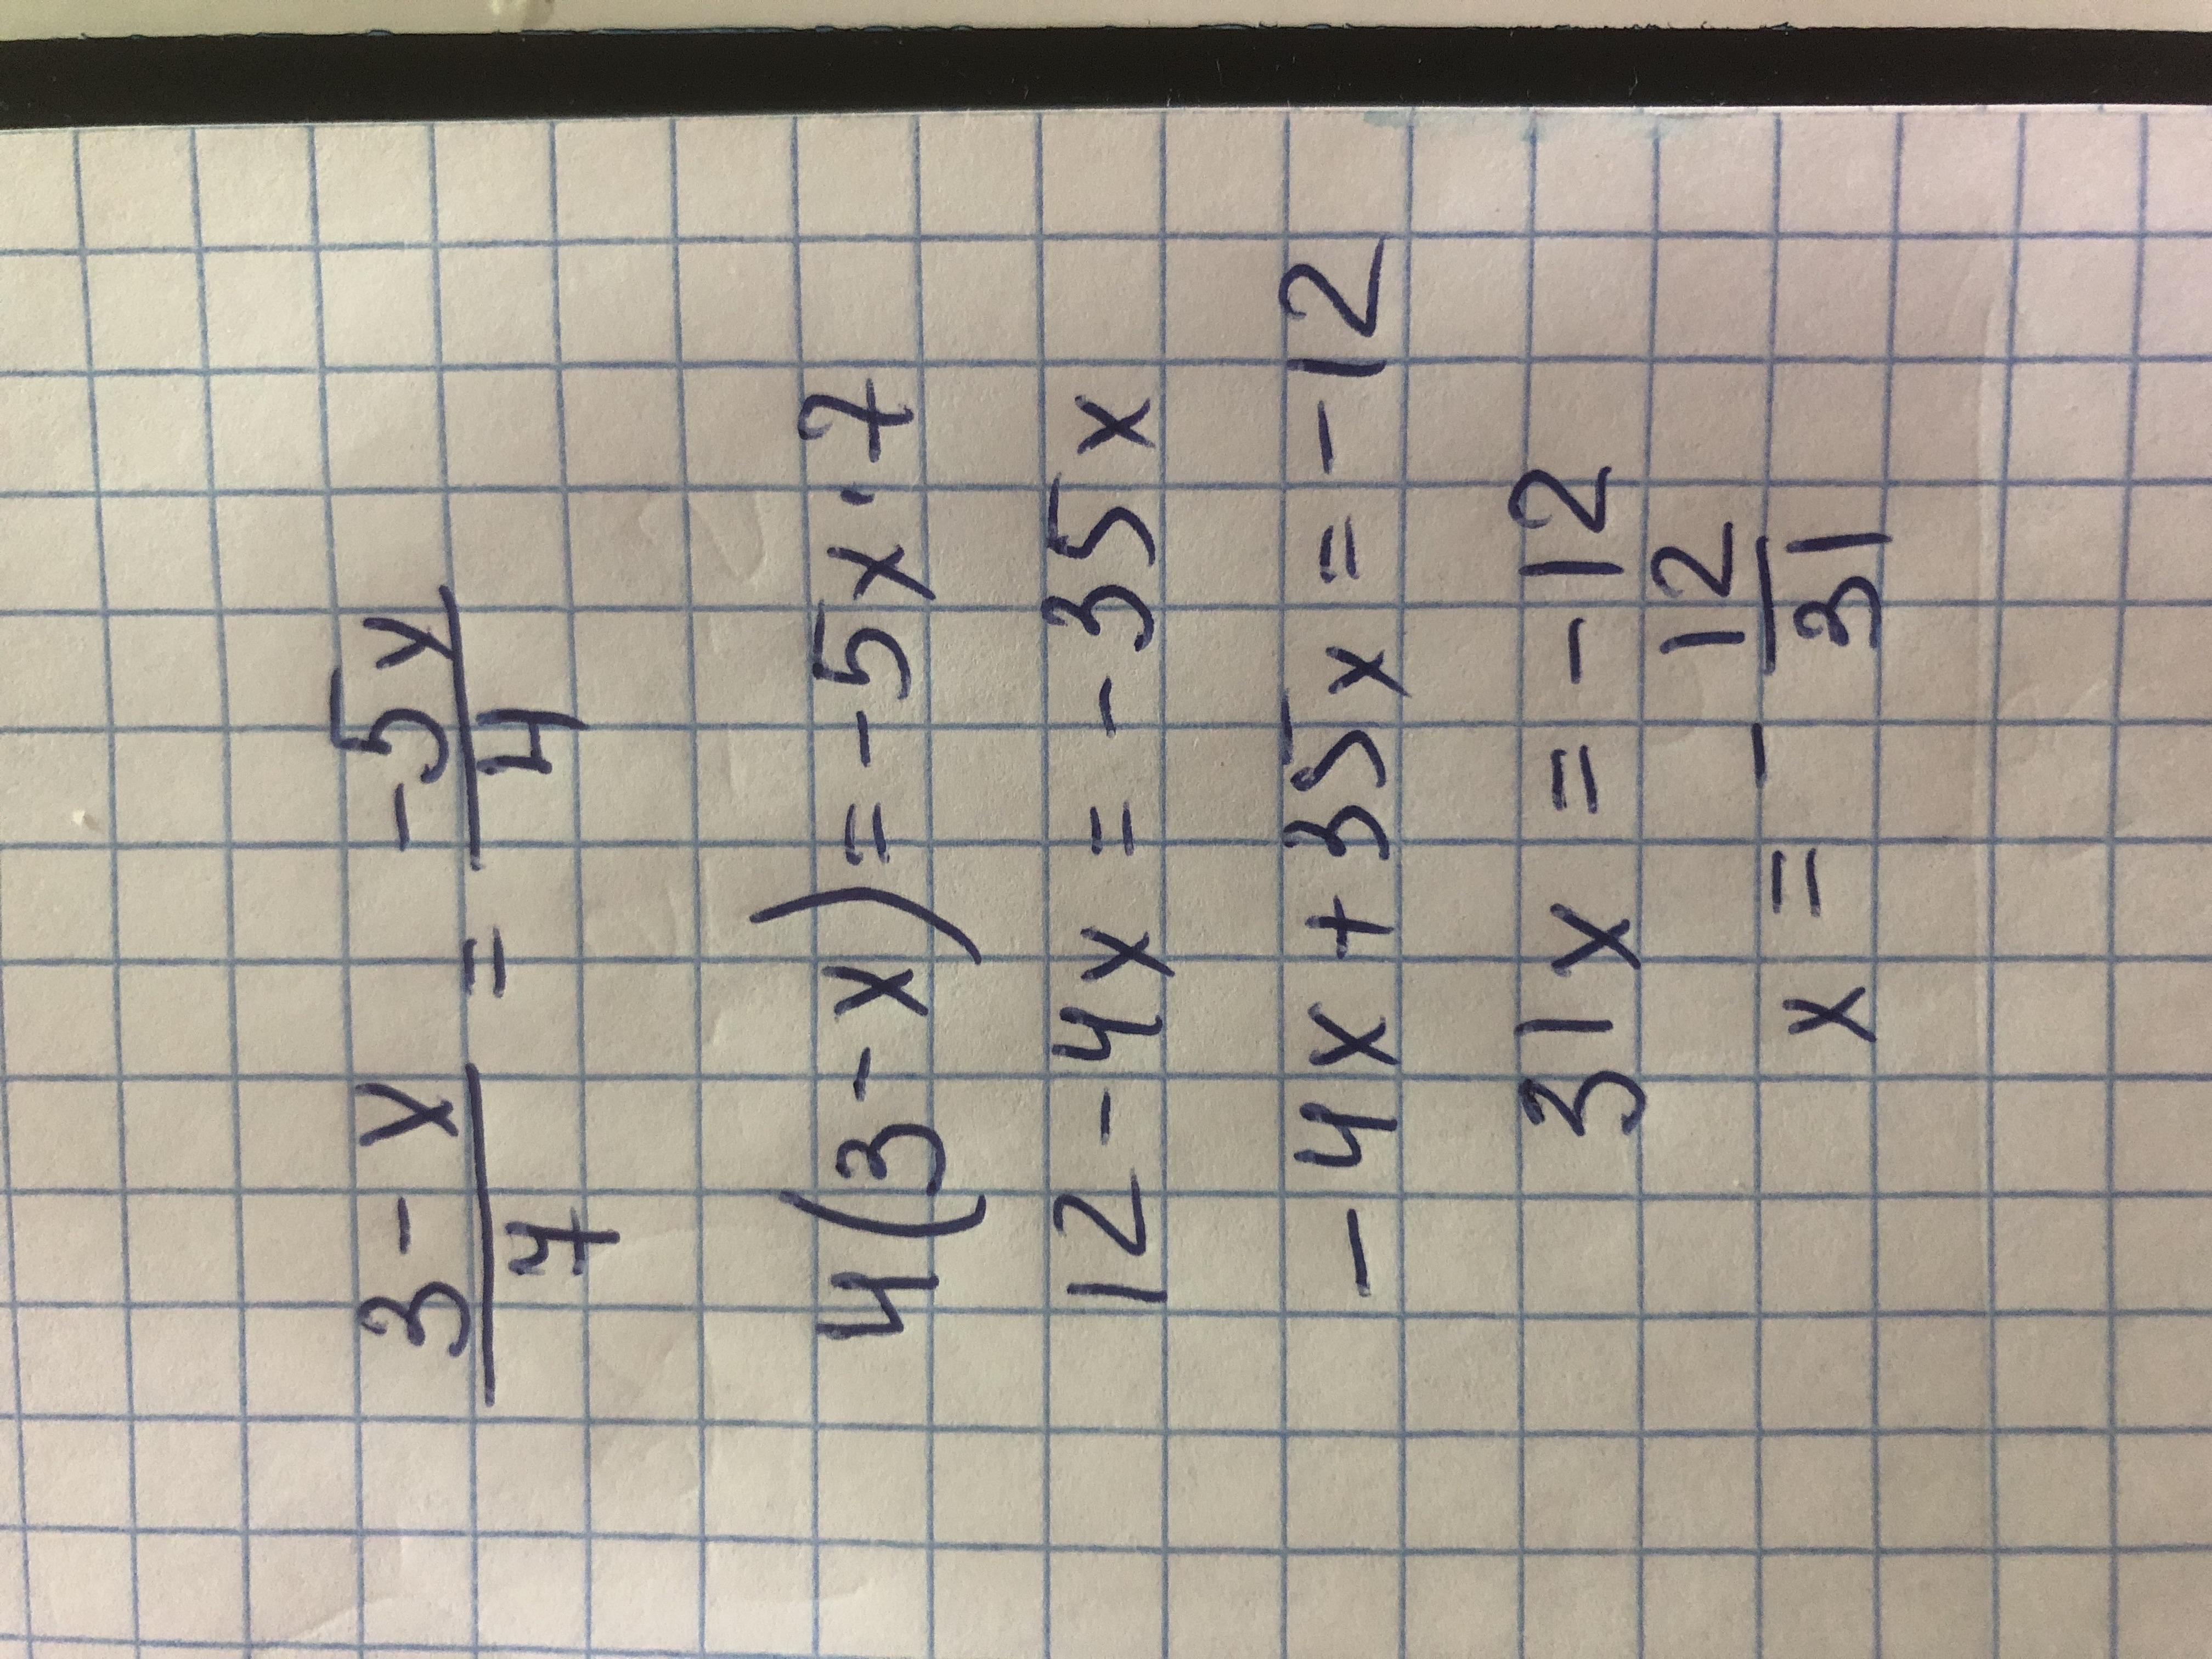 3 - x / 7 = -5x / 4
4(3 - x) = -5x · 7
12 - 4x = - 35x
- 4x + 35x = - 12
31x = - 12
x = - 12 / 31